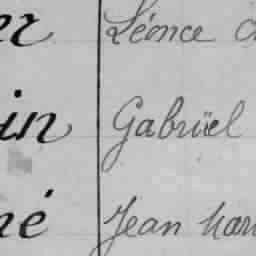 er Léonce
in Gabriël
né Jean Mari